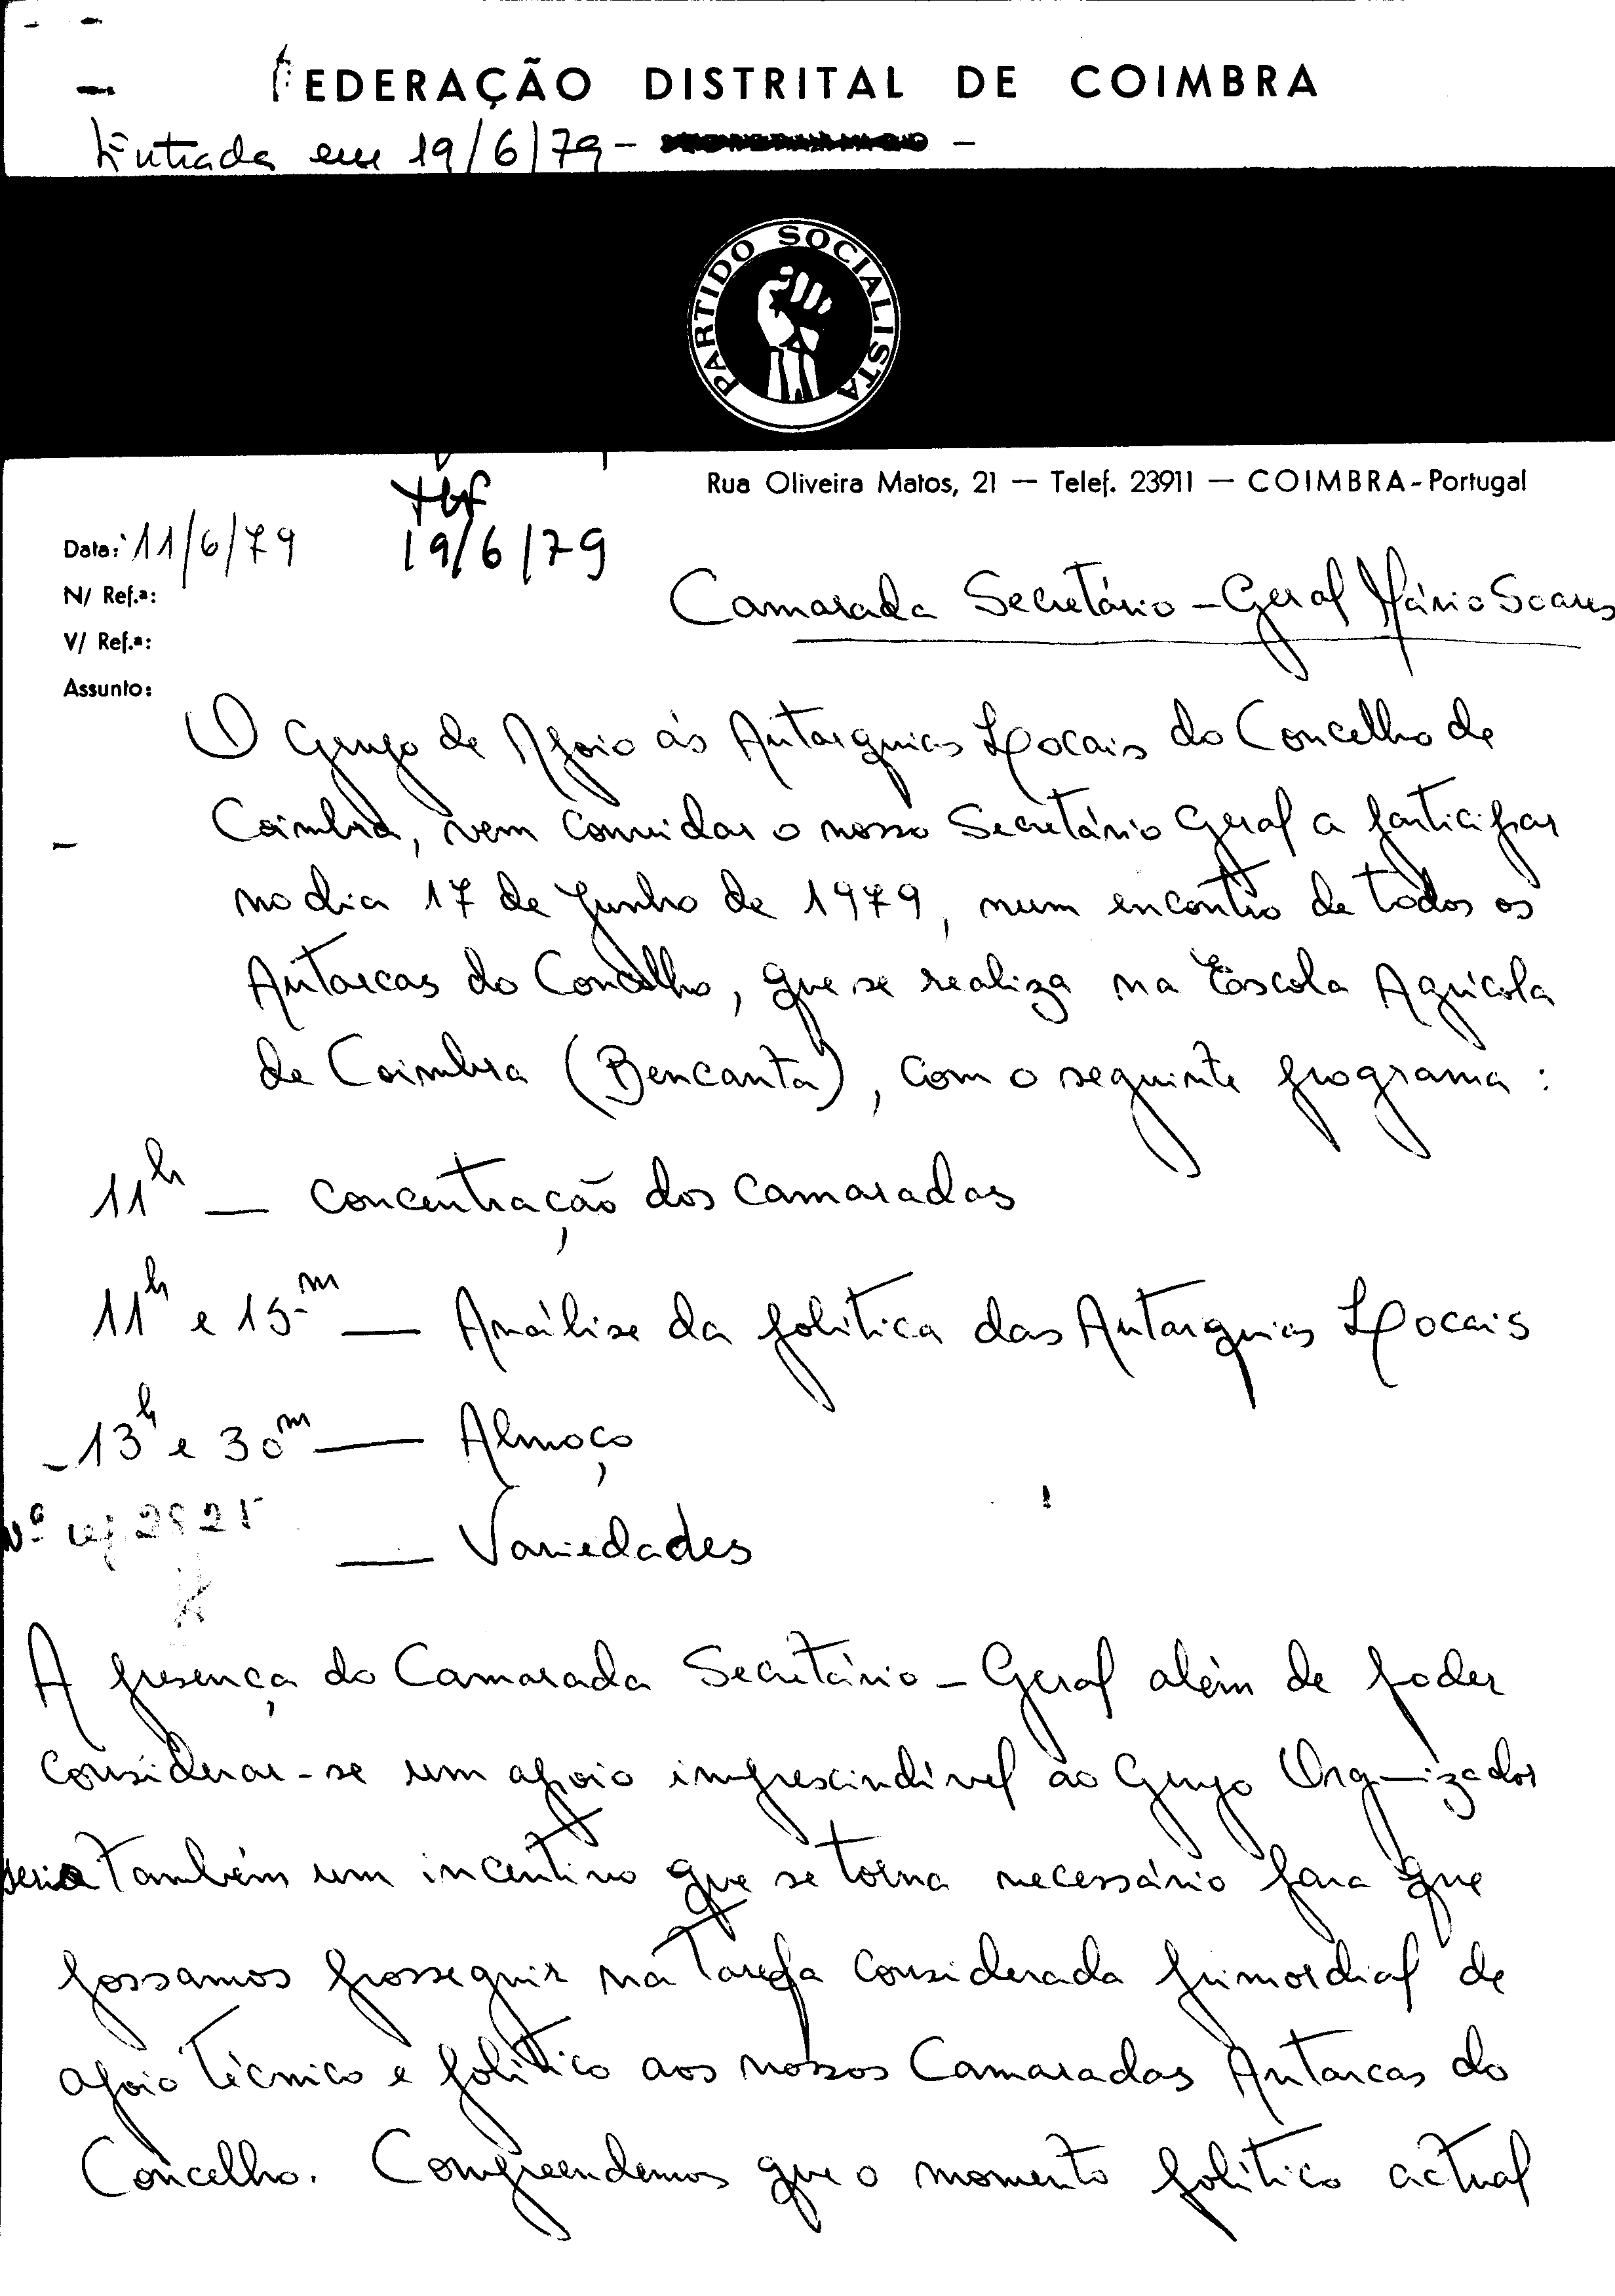 FEDERAÇÃO DISTRITAL DE COIMBRA
Entrada em 19/6/79 -
PARTIDO SOCIALISTA
Rua Oliveira Matos, 21 — Telef. 23911 — COIMBRA - Portugal
19/6/79
Data: 11/6/79
N/ Ref.ª:
V/ Ref.ª:
Assunto:
Camarada Secretário-Geral Mário Soares
O Grupo de Apoio às Autarquias Locais do Concelho de
Coimbra, vem convidar o nosso Secretário Geral a participar
no dia 17 de Junho de 1979, num encontro de todos os
Autarcas do Concelho, que se realiza na Escola Agrícola
de Coimbra (Bencanta), com o seguinte programa:
11h — Concentração dos camaradas
11h e 15m — Análise da política das Autarquias Locais
- 13h e 30m — Almoço
— Variedades
A presença do Camarada Secretário-Geral além de poder
considerar-se um apoio imprescindível ao Grupo Organizador
seria também um incentivo que se torna necessário para que
possamos prosseguir na tarefa considerada primordial de
apoio técnico e político aos nossos Camaradas Autarcas do
Concelho. Compreendemos que o momento político actual